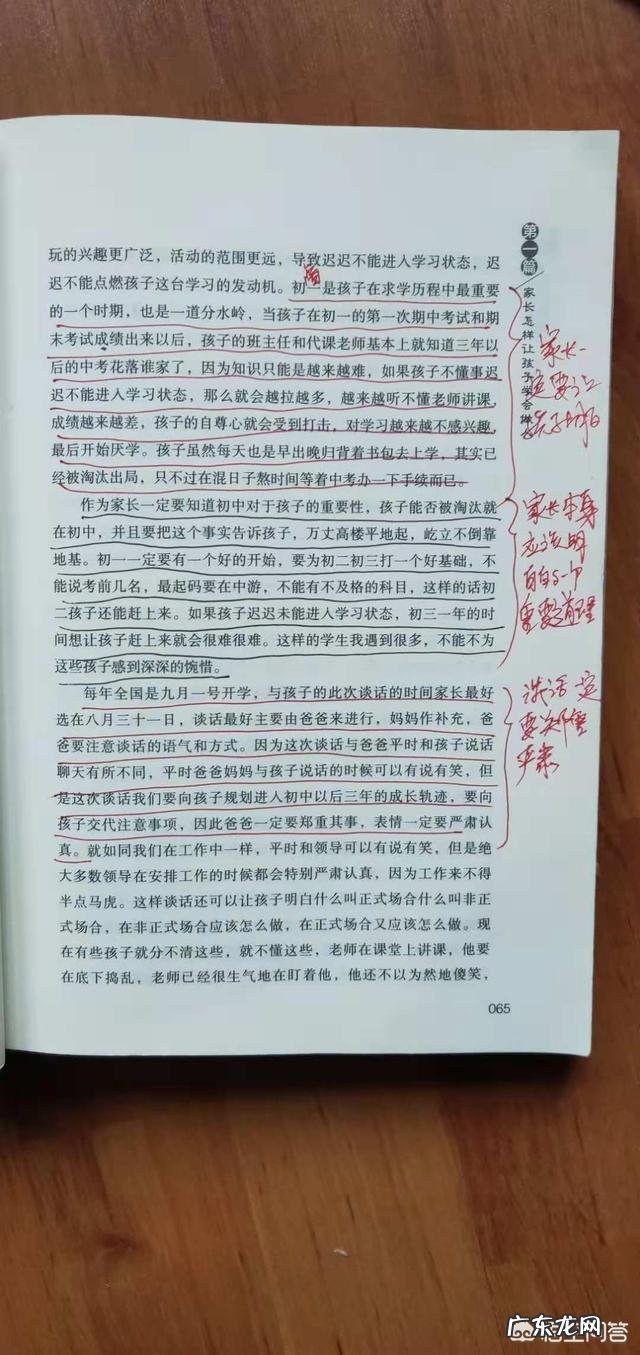 玩的兴趣更广泛，活动的范围更远，导致迟迟不能进入学习状态，迟
迟不能点燃孩子这台学习的发动机。初一是孩子在求学历程中最重要
的一个时期，也是一道分水岭，当孩子在初一的第一次期中考试和期
末考试成绩出来以后，孩子的班主任和代课老师基本上就知道三年以
后的中考花落谁家了，因为知识只能是越来越难，如果孩子不懂事迟
迟不能进入学习状态，那么就会越拉越多，越来越听不懂老师讲课，
成绩越来越差，孩子的自尊心就会受到打击，对学习越来越不感兴趣，
最后开始厌学。孩子虽然每天也是早出晚归背着书包去上学，其实已
经被淘汰出局，只不过在混日子熬时间等着中考办一下手续而已。
作为家长一定要知道初中对于孩子的重要性，孩子能否被淘汰就
在初中，并且要把这个事实告诉孩子，万丈高楼平地起，屹立不倒靠
地基。初一一定要有一个好的开始，要为初二初三打一个好基础，不
能说考前几名，最起码要在中游，不能有不及格的科目，这样的话初
二孩子还能赶上来。如果孩子迟迟未能进入学习状态，初三一年的时
间想让孩子赶上来就会很难很难。这样的学生我遇到很多，不能不为
这些孩子感到深深的惋惜。
每年全国是九月一号开学，与孩子的此次谈话的时间家长最好
选在八月三十一日，谈话最好主要由爸爸来进行，妈妈作补充，爸
爸要注意谈话的语气和方式。因为这次谈话与爸爸平时和孩子说话
聊天有所不同，平时爸爸妈妈与孩子说话的时候可以有说有笑，但
是这次谈话我们要向孩子规划进入初中以后三年的成长轨迹，要向
孩子交代注意事项，因此爸爸一定要郑重其事，表情一定要严肃认
真。就如同我们在工作中一样，平时和领导可以有说有笑，但是绝
大多数领导在安排工作的时候都会特别严肃认真，因为工作来不得
半点马虎。这样谈话还可以让孩子明白什么叫正式场合什么叫非正
式场合，在非正式场合应该怎么做，在正式场合又应该怎么做。现
在有些孩子就分不清这些，就不懂这些，老师在课堂上讲课，他要
在底下捣乱，老师已经很生气地在盯着他，他还不以为然地傻笑，
065
第一篇
家长怎样让孩子学会做
家长一
定要让
孩子明白
家长本身
应该明
白的一个
重要道理
谈话一定
要郑重
严肃
广东龙网
悟空问答